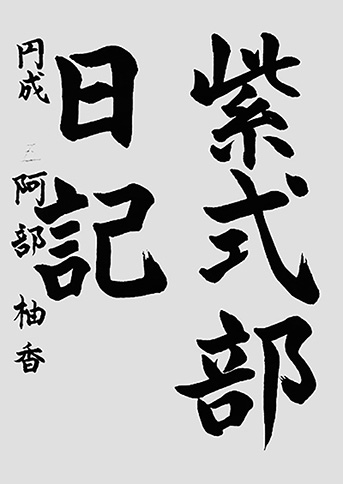 紫式部
日記
円成 三 阿部柚香